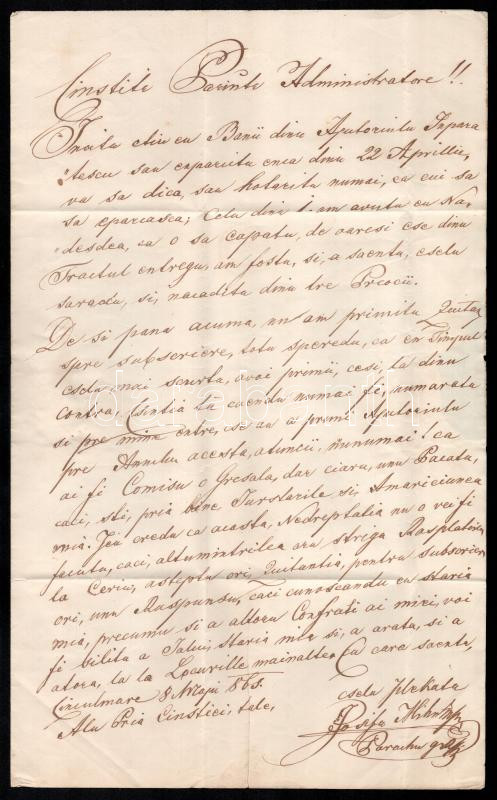 Cinstite Parinte Administratore!!
Invitu chiu cu Banii dinu Ajutoriulu Inpara
tescu sau inparcitu inca dinu 22 Aprillii,
va sa dica, sau hotaritu numai, ca cui sa
sa eparcasca; Celu dinu t. am avutu cu Na,
desdea, ca o sa capatu, de oaresi ese dinu
Tractul entregu, am fostu, si, a saentu, eselu
saradu, si, nacaditu dinu tre Preocii.
De si pana acuma, nu am primitu Quitan
spre subscriere, totu speredu, ca en Timpul
eselu mai scurtu, avoi primii, cesi, la dinu
contra, Cinstia ta cacndu numai fi, numaratu
si pre mine entre, ce au a primi Ajutoriulu
pre Annulu acesta, atuncii, nunumai! ca
ai fi Comisu o Gresala, dar ciaru, unu Pacatu,
caci, stii, pria bine Turstarile si, Amariciunea
mia. Jeu credu ca acasta, Nedreptatia nu o vei fi
facutu, caci, altumintrilea aru striga Rasplatire
la Ceriu, asteptu ori, Quitantia, pentru Subscriere
ori, unu Raspunsu, caci cunoscandu cu staria
mia, precumu si a altoru Confrati ai miei, voi
fi bilitu a Talui, staria mia si, a aratu, si a
atora, la la Locurille mainaltea Cu care saentu,
Cinculmare 8 Maju 868.
Alu Pria Cinstiei, tale,
eselu Plekatu
Josifu
Parochu
darabanth